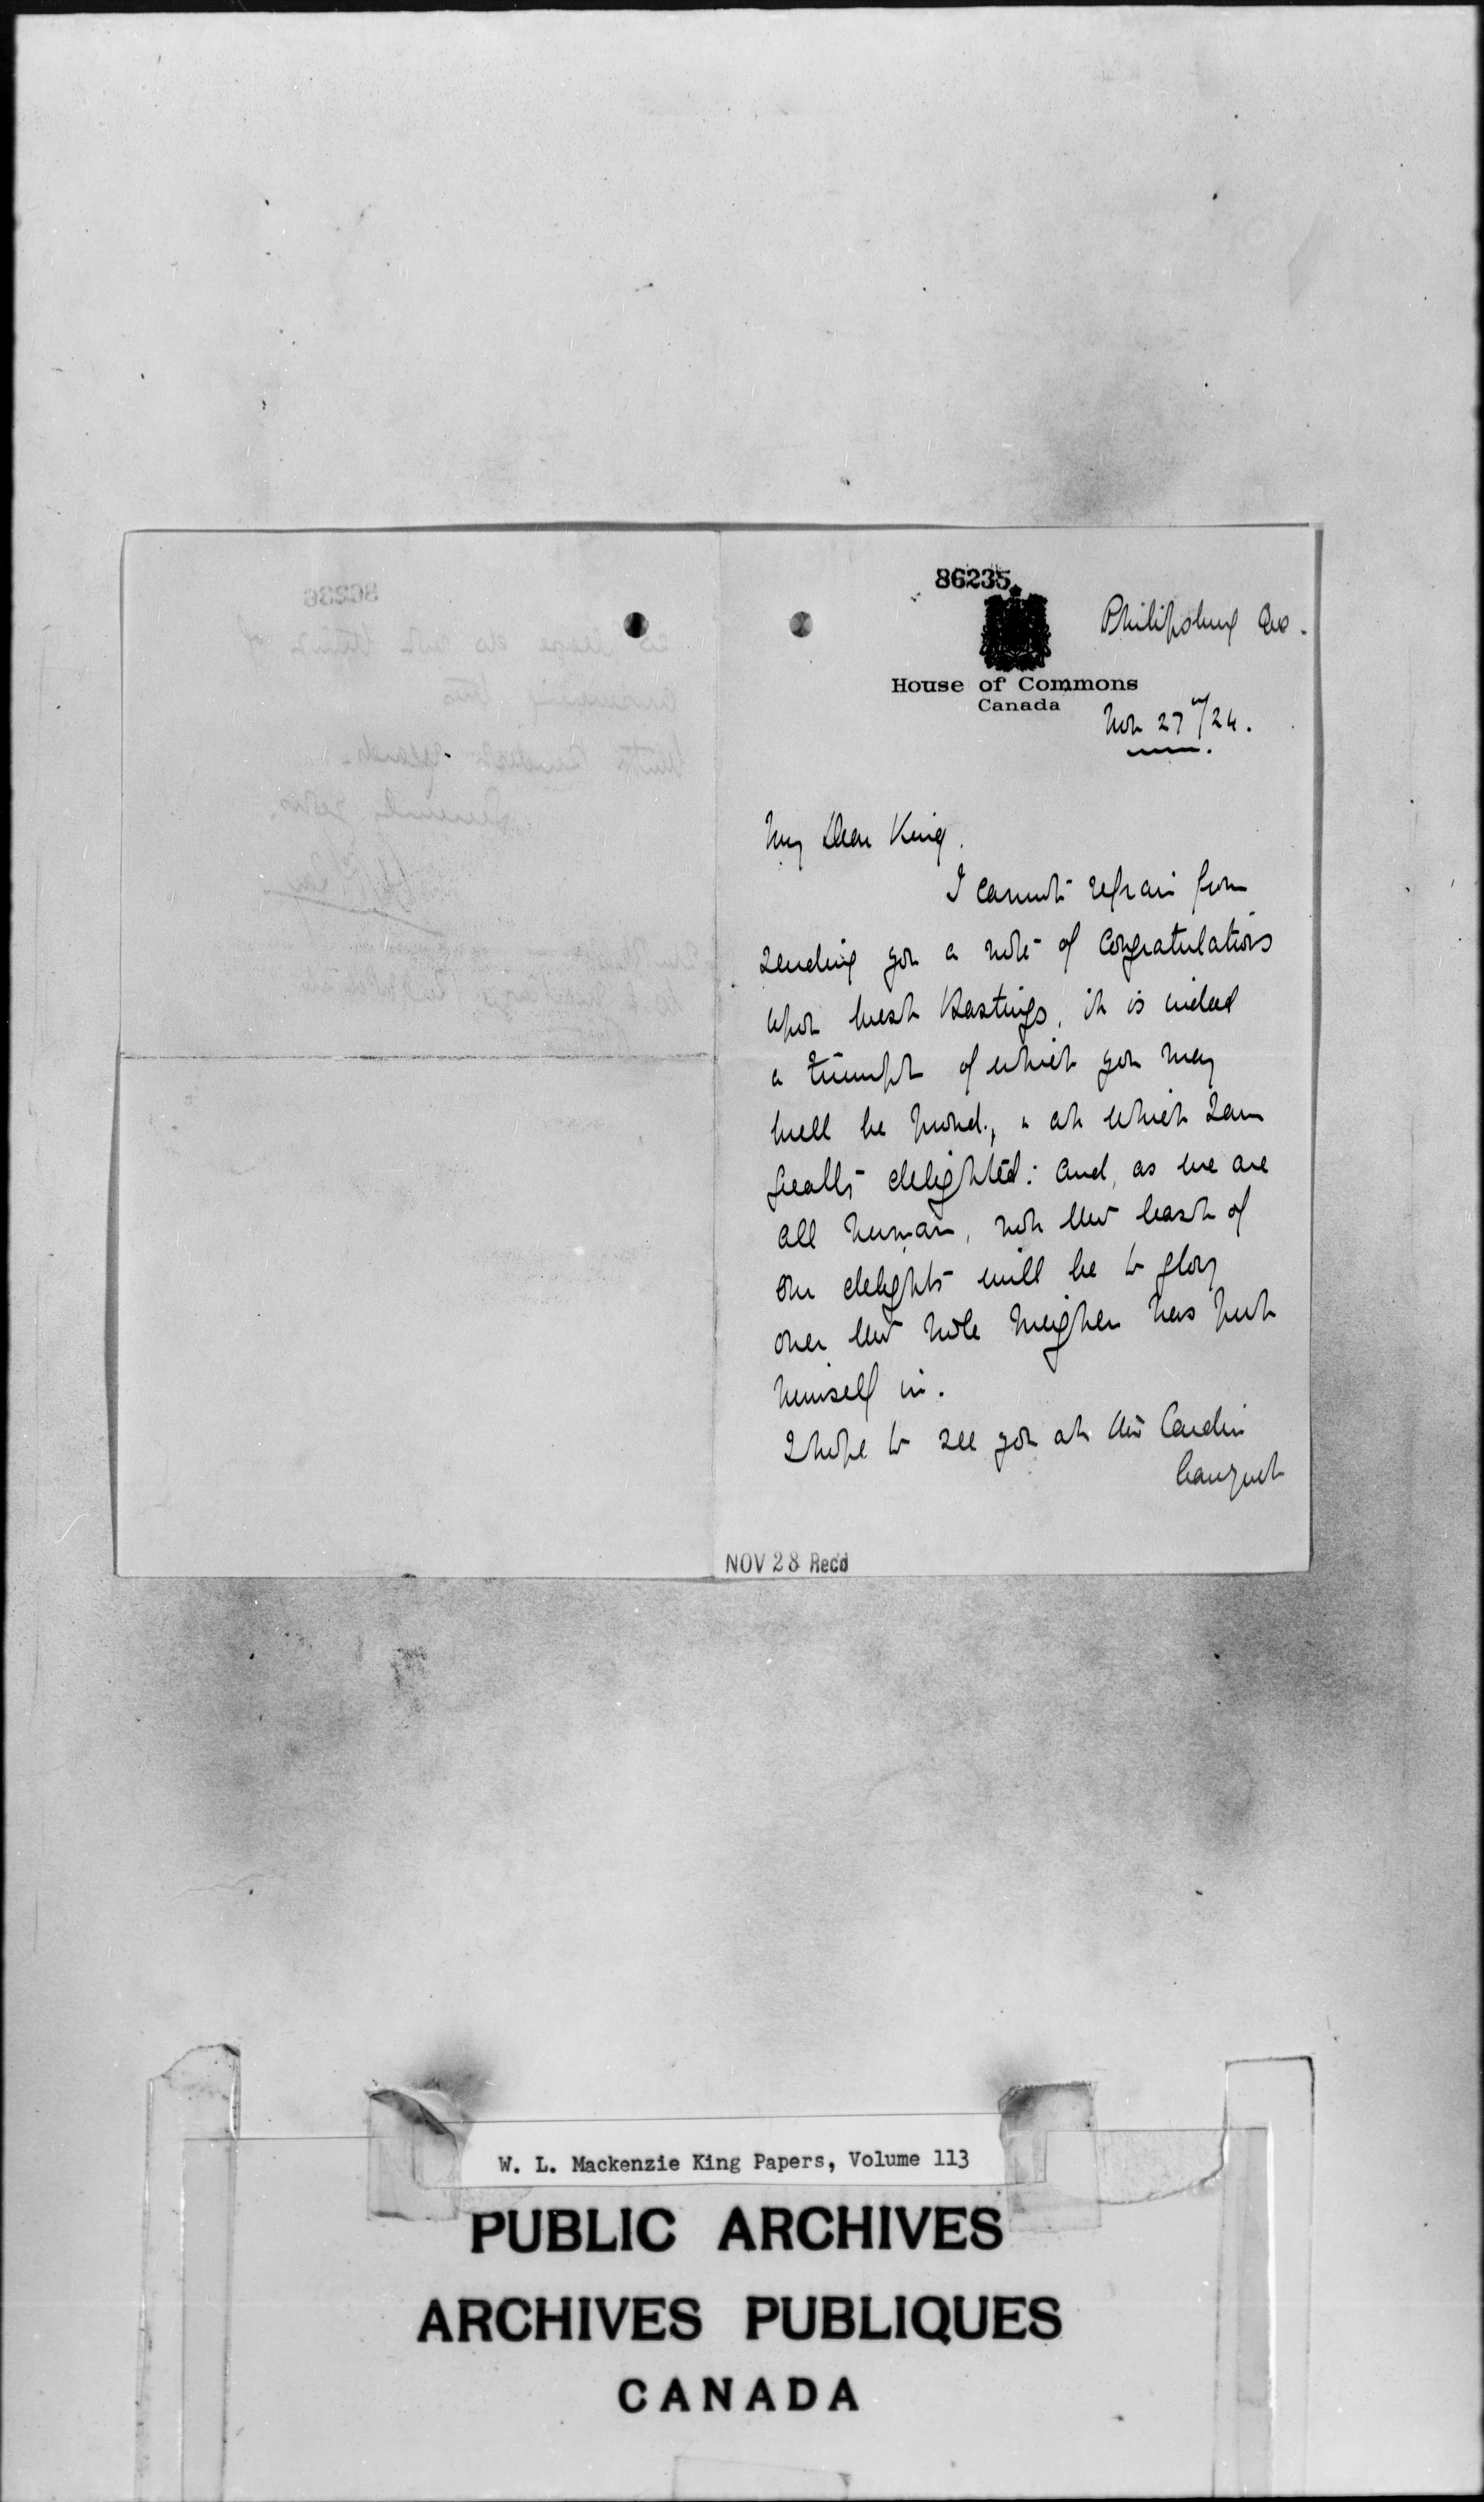 86235
Philipsburg Que.
House of Commons
Canada
Nov 27th/24.
My Dear King.
I cannot refrain from
sending you a note of congratulations
upon West Hastings, it is indeed
a triumph of which you may
well be proud, & at which I am
greatly delighted: and, as we are
all human, not the least of
our delights will be to glory
over the hole Meighen has put
himself in.
I hope to see you at the Cardin
banquet
NOV 28 Recd
86236
so please do not think of
answering this
With kindest regards.
Sincerely yours
W. L. Mackenzie King Papers, Volume 113
PUBLIC ARCHIVES
ARCHIVES PUBLIQUES
CANADA